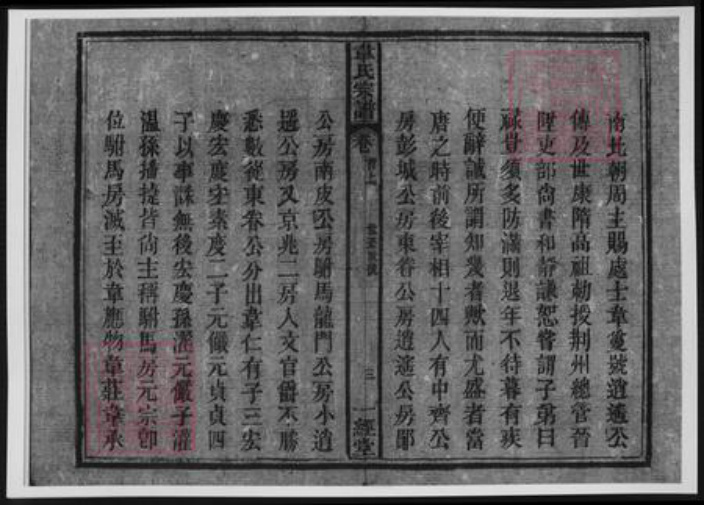 南北朝周主賜處士韋夐號逍遙公
傳及世康隋高祖勅授荆州總管晉
陞吏部尚書和靜謙恕嘗謂子弟曰
祿豈須多防滿則退年不待暮有疾
便辭誠所謂知幾者歟而尤盛者當
唐之時前後宰相十四人有中齊公
房彭城公房東眷公房逍遙公房鄖
韋氏宗譜
卷
三
一經堂
公房南皮公房駙馬龍門公房小逍
遙公房又京兆二房人文官爵不勝
悉數從東眷公分出韋仁有子三宏
慶宏度宏素度二子元儼元貞貞四
子以事誅無後宏慶孫濯元儼子灌
溫孫播捷皆尚主稱駙馬房元宗即
位駙馬房滅至於韋應物韋莊韋承